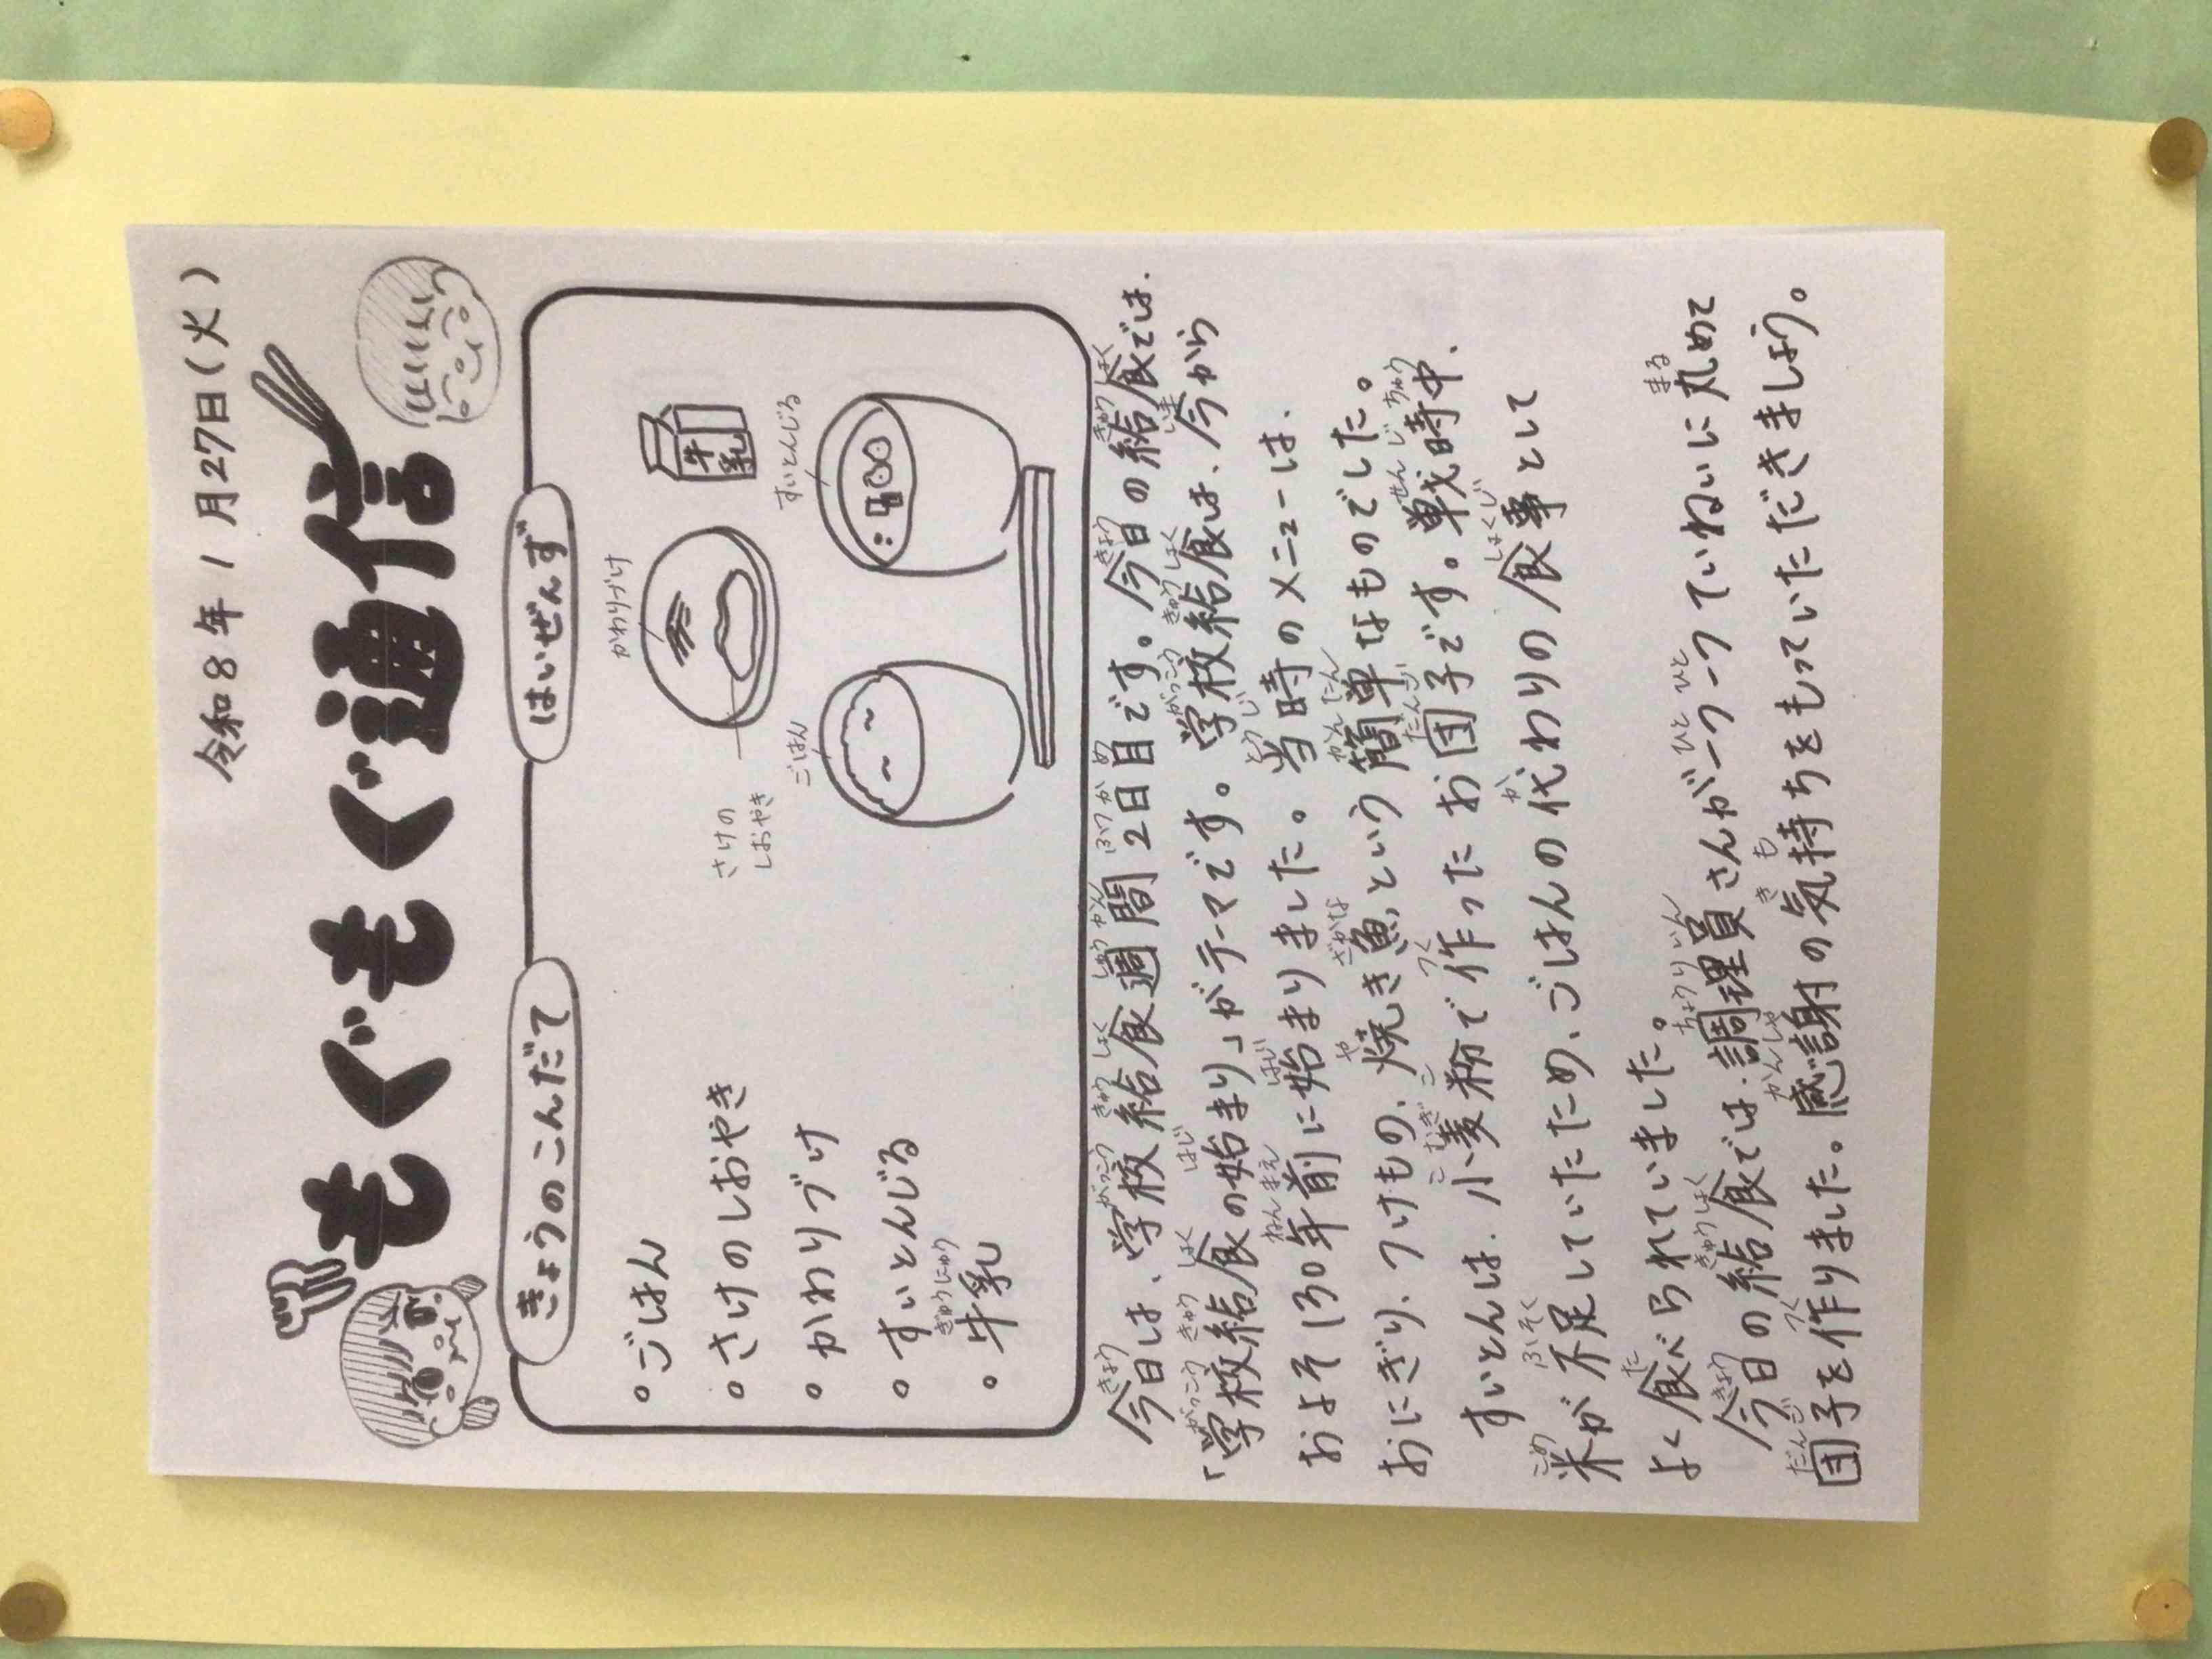 令和8年1月27日(火)
もぐもぐ通信
きょうのこんだて
はいぜんず
・ごはん
・さけのしおやき
・かわりづけ
・すいとんじる
・牛乳
ぎゅうにゅう
かわりづけ
牛乳
さけの
しおやき
すいとんじる
ごはん
今日は、学校給食週間2日目です。今日の給食では、
「学校給食の始まり」がテーマです。学校給食は、今から
およそ130年前に始まりました。当時のメニューは、
おにぎり、つけもの、焼き魚という簡単なものでした。
すいとんは、小麦粉で作ったお団子です。戦時中、
米が不足していたため、ごはんの代わりの食事として
よく食べられていました。
今日の給食では、調理員さんが一つ一つていねいに丸めて
団子を作りました。感謝の気持ちをもっていただきましょう。